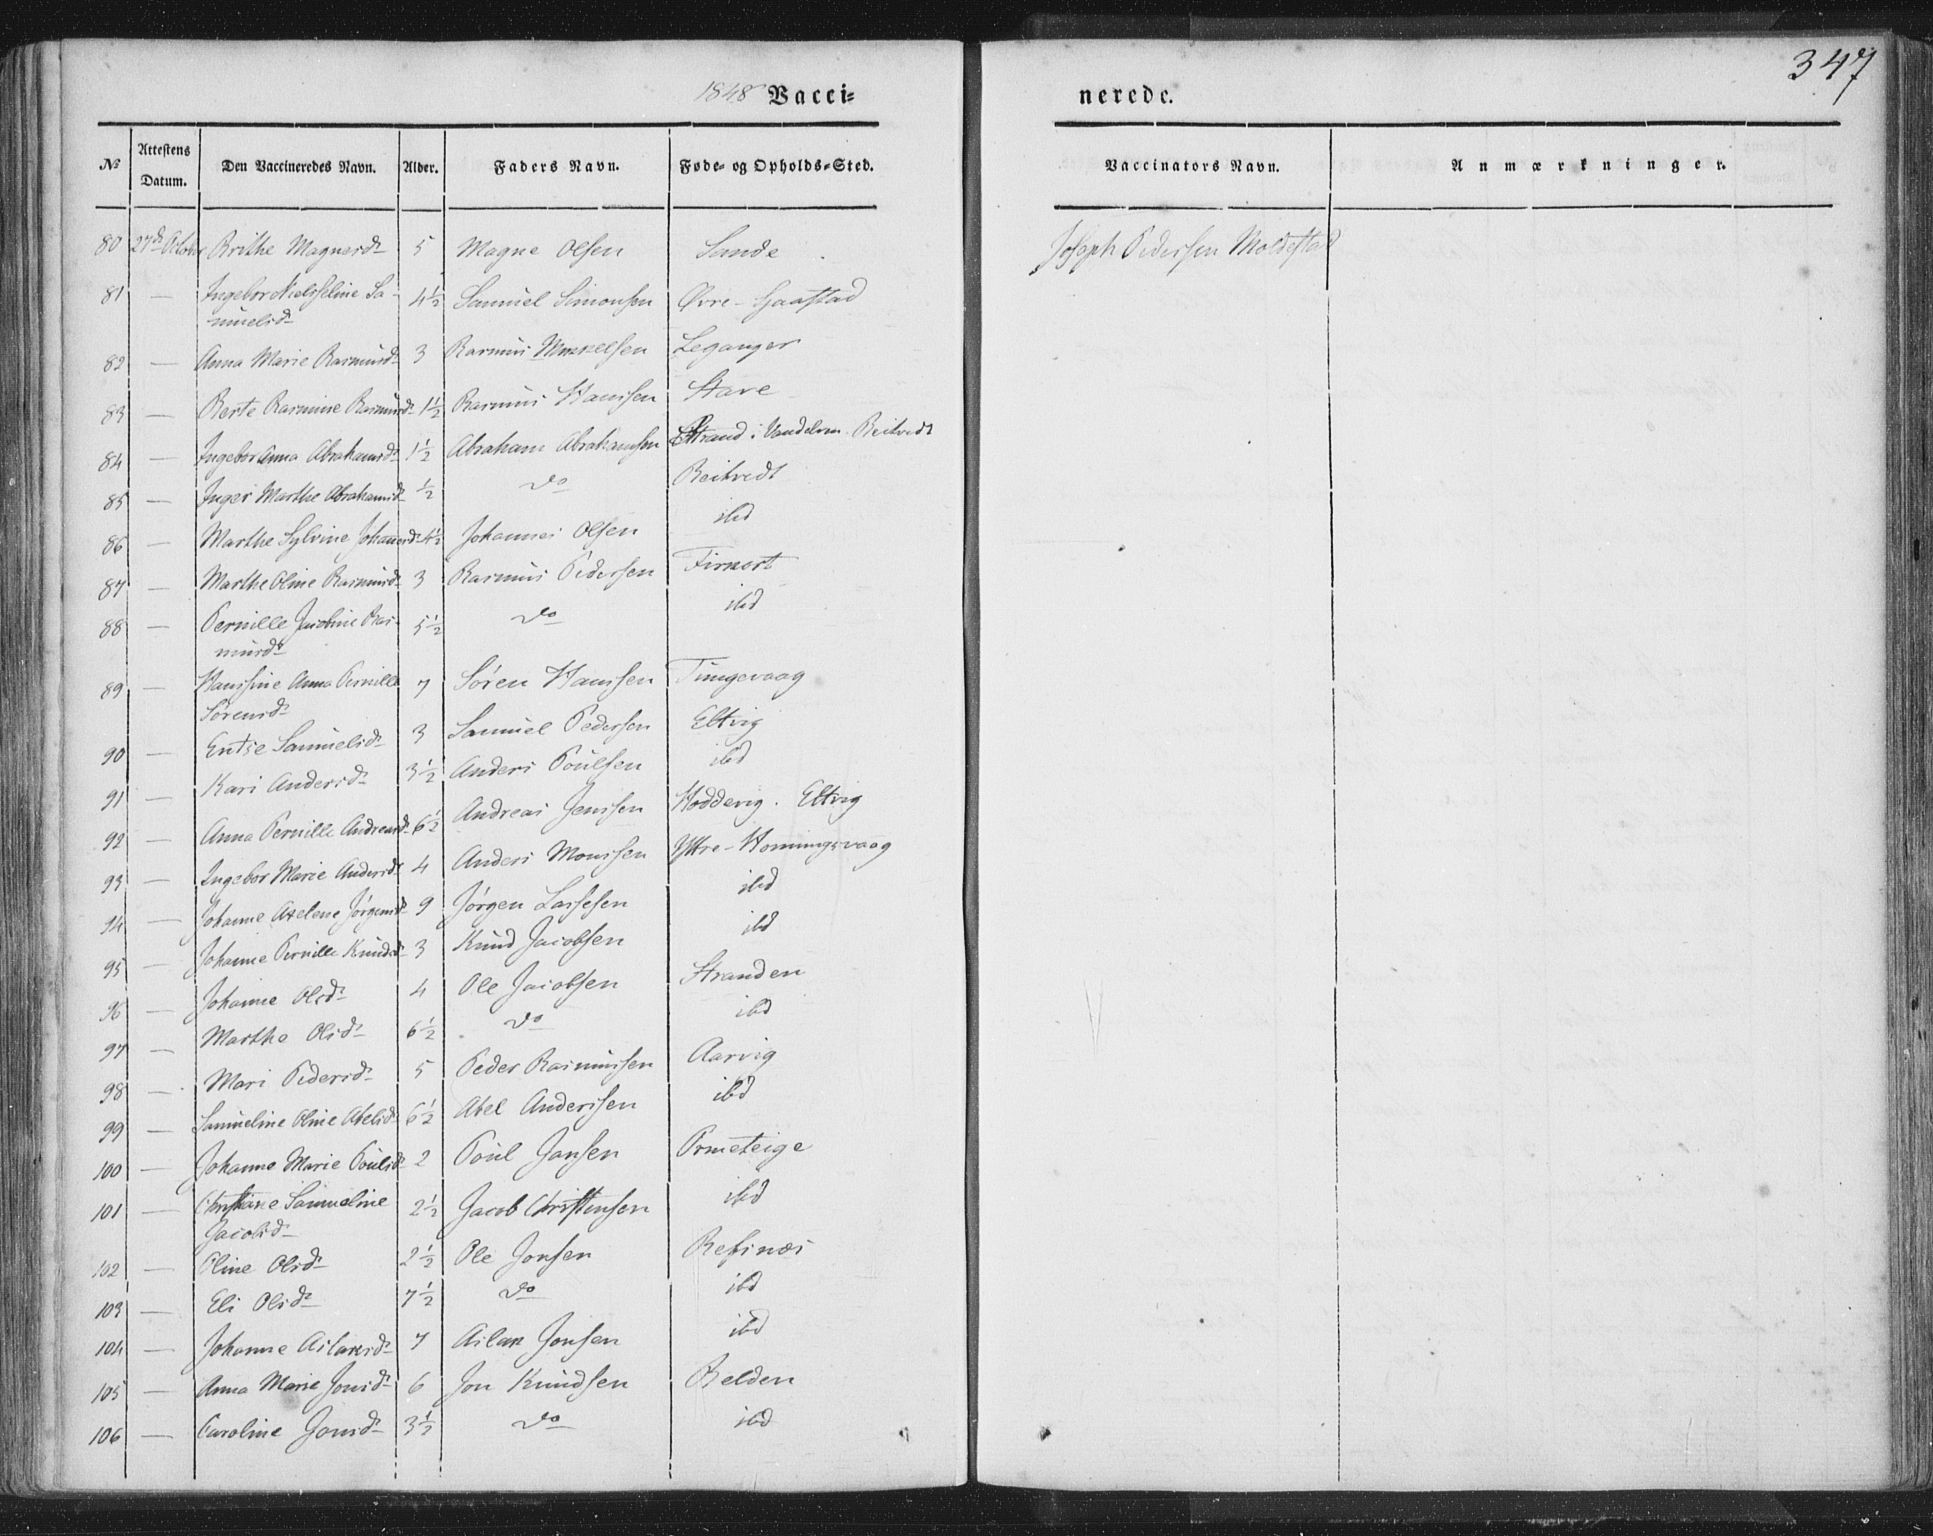 1848 Vacci=
nerede.
347
No Attestens Datum. Den Vaccineredes Navn. Alder. Faders Navn. Føde- og Opholds-Sted. Vaccinators Navn. Anmærkninger.
80 27de Brithe Magnesd 5 Magne Olsen Sande Joseph Pedersen Moldestad
81 — Ingebor Nielseline Sa- 4½ Samuel Simonsen Øvre-Haastad
muelsd
82 — Anna Marie Rasmusd 3 Rasmus Mikkelsen Leganger
83 — Berte Rasmine Rasmusd 1½ Rasmus Hanssen Stave
84 — Ingebor Anna Abrahamsd 1½ Abraham Abrahamsen Strand i Vandelven Reitvedt
85 — Inger Marthe Abrahamsd ½ do Reitvedt
86 — Marthe Sylvine Johannesd 4½ Johannes Olsen ibd
87 — Marthe Oline Rasmusd 3 Rasmus Pedersen
88 — Pernille Jacobine Ras- 5½ do ibd
musd
89 — Hanssine Anna Pernille 7 Søren Hanssen Tungevaag
Sørensd
90 — Entse Samuelsd 3 Samuel Pedersen Eltvig
91 — Kari Andersd 3½ Anders Poulsen ibd
92 — Anna Pernille Andreasd 6½ Andreas Jenssen Hoddevig. Eltvig
93 — Ingebor Marie Andersd 4 Anders Monssen Yttre-Honningsvaag
94 — Johanne Axelene Jørgensd 9 Jørgen Lassesen ibd
95 — Johanne Pernille Knudsd 3 Knud Jacobsen ibd
96 — Johanne Olsd 4 Ole Jacobsen Stranden
97 — Marthe Olsd 6½ do ibd
98 — Mari Pedersd 5 Peder Rasmussen Aarvig
99 — Samueline Oline Abelsd 6½ Abel Anderssen ibd
100 — Johanne Marie Poulsd 2 Poul Jansen Ormeteige
101 — Christiane Samueline 2½ Jacob Christensen ibd
Jacobsd
102 — Oline Olsd 2½ Ole Jonsen Refsnæs
103 — Eli Olsd 7½ do ibd
104 — Johanne Aslaksd 7 Aslak Jonsen ibd
105 — Anna Marie Jonsd 6 Jon Knudsen Belden
106 — Caroline Jonsd 3½ do ibd